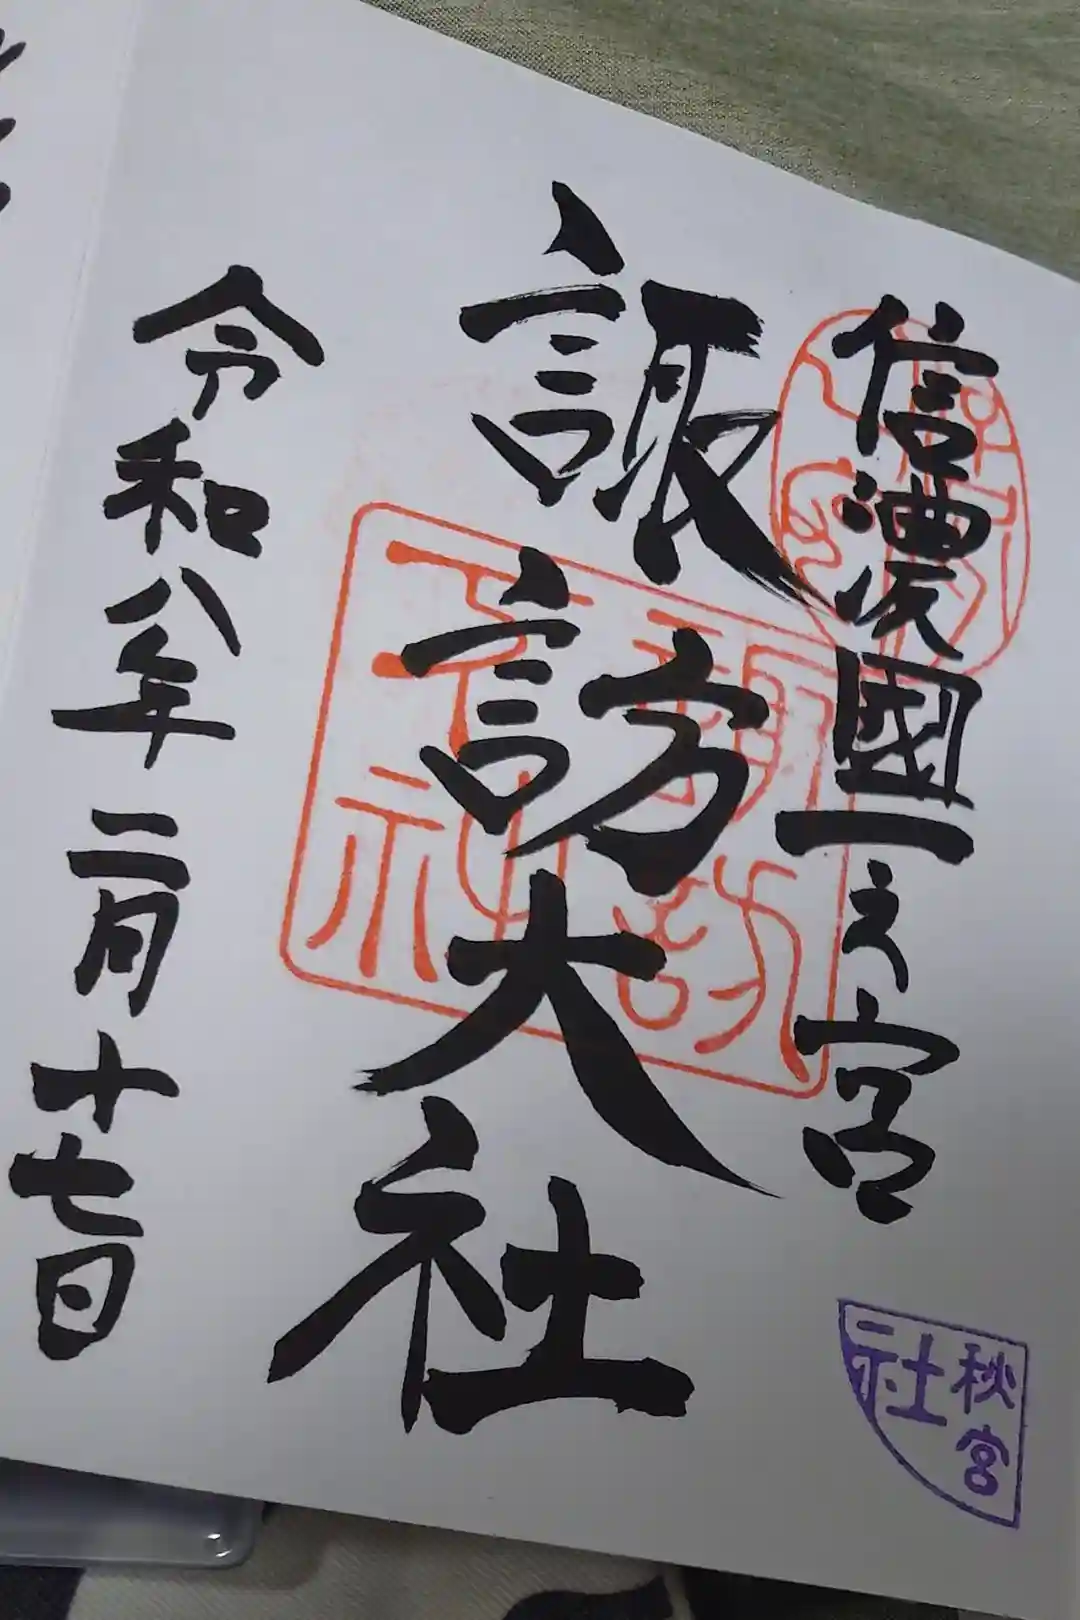 信濃國一之宮
諏訪大社
令和八年二月十七日
秋宮
社